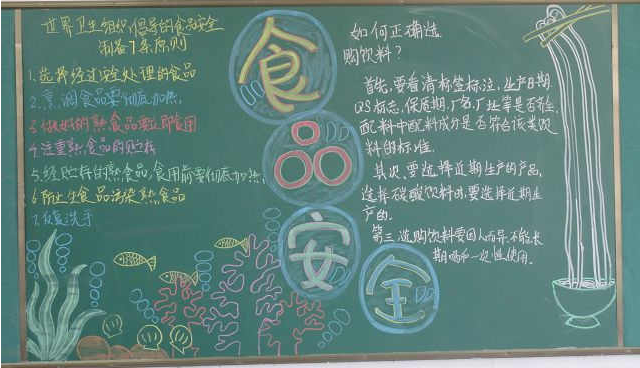 世界卫生组织倡导的食品安全
制备7条原则
1.选择经过安全处理的食品
2.烹调食品要彻底加热
3.做好的熟食品要立即食用
4.注重熟食品的贮存
5.经贮存的熟食品,食用前要彻底加热.
6.防止生食品污染熟食品
7.反复洗手
食
品
安
全
如何正确选
购饮料?
首先,要看清标签标注,生产日期.
QS标志,保质期,厂名,厂址等是否符合.
配料中配料成分是否符合该类饮
料的标准.
其次,要选择近期生产的产品,
选择碳酸饮料时,要选择近期生
产的.
第三选购饮料要因人而异.不能长
期喝和一次性使用.